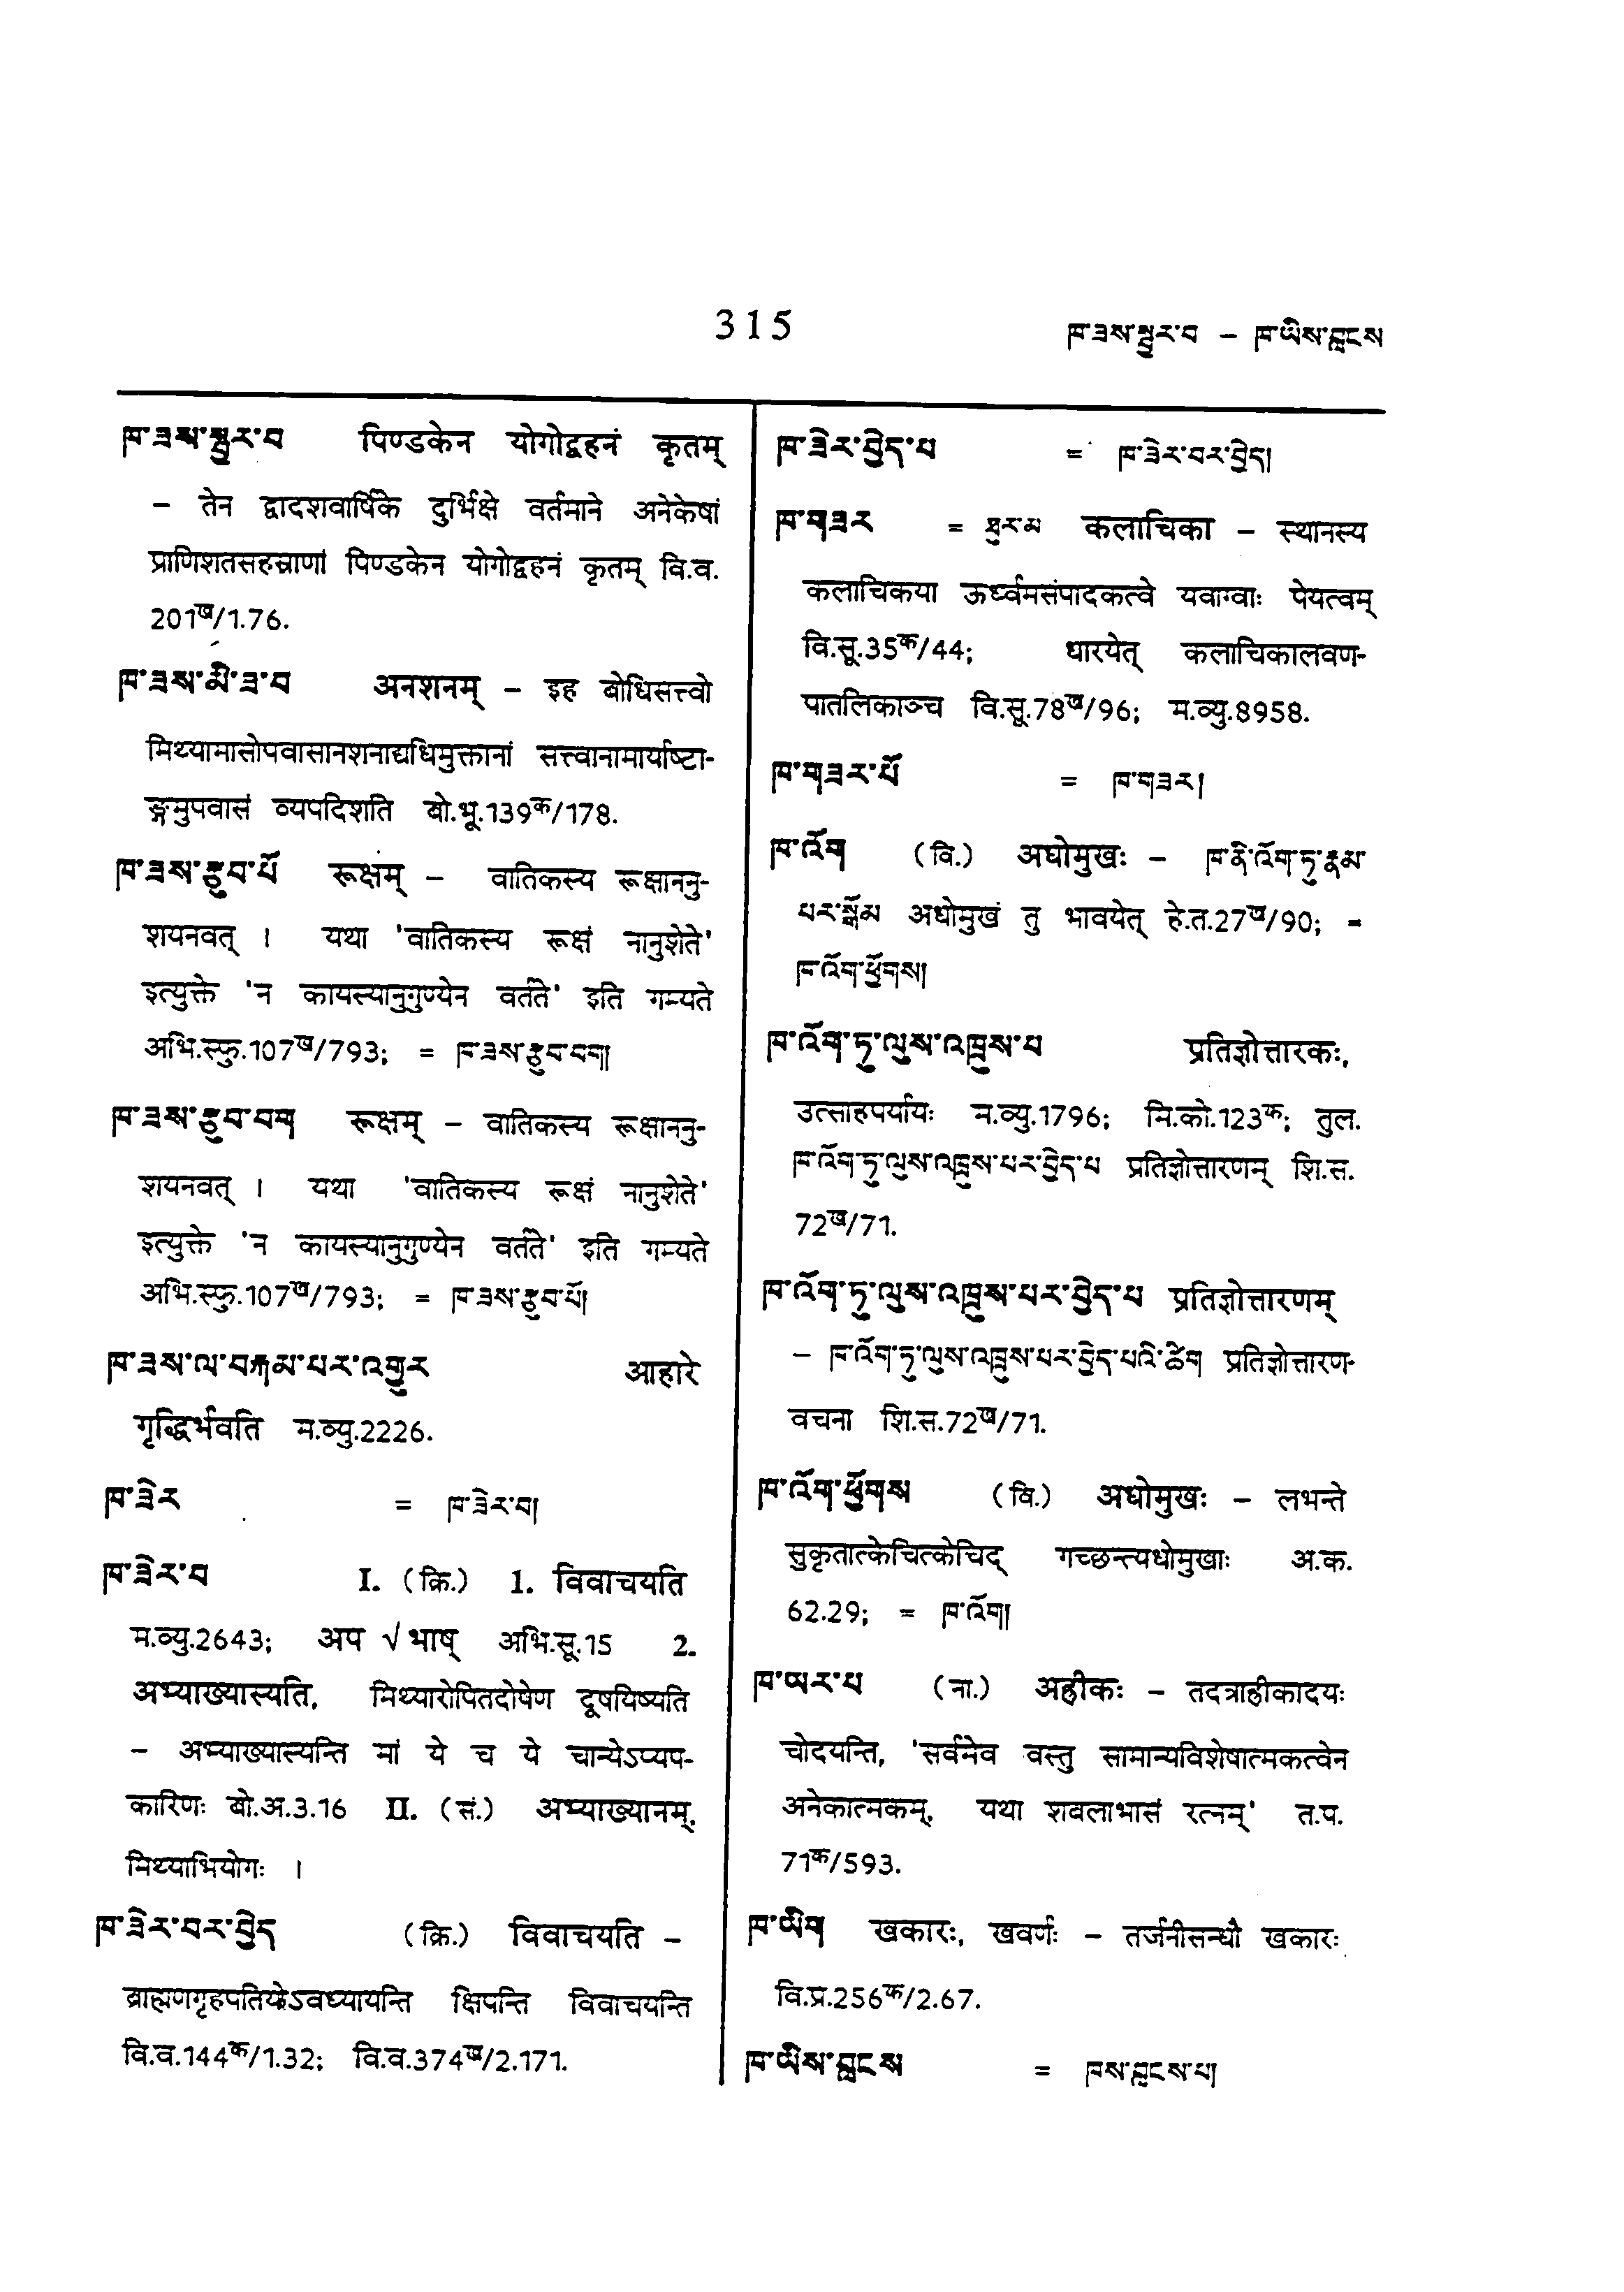 315
ཁ་ཟས་སྦྱར་བ – ཁ་ཡིས་བླངས
ཁ་ཟས་སྦྱར་བ पिण्डकेन योगोद्वहनं कृतम्
– तेन द्वादशवार्षिके दुर्भिक्षे वर्तमाने अनेकेषां
प्राणिशतसहस्राणां पिण्डकेन योगोद्वहनं कृतम् वि.व.
201ख/1.76.
ཁ་ཟས་མི་ཟ་བ अनशनम् – इह बोधिसत्त्वो
मिथ्यामासोपवासानशनाद्यधिमुक्तानां सत्त्वानामार्याष्टा-
ङ्गमुपवासं व्यपदिशति बो.भू.139क/178.
ཁ་ཟས་རྩུབ་པོ रूक्षम् – वातिकस्य रूक्षाननु-
शयनवत् । यथा 'वातिकस्य रूक्षं नानुशेते'
इत्युक्ते 'न कायस्यानुगुण्येन वर्तते' इति गम्यते
अभि.स्फु.107ख/793; = ཁ་ཟས་རྩུབ་བག།
ཁ་ཟས་རྩུབ་བག रूक्षम् – वातिकस्य रूक्षाननु-
शयनवत् । यथा 'वातिकस्य रूक्षं नानुशेते'
इत्युक्ते 'न कायस्यानुगुण्येन वर्तते' इति गम्यते
अभि.स्फु.107ख/793; = ཁ་ཟས་རྩུབ་པོ།
ཁ་ཟས་ལ་བརྐམ་པར་འགྱུར आहारे
गृद्धिर्भवति म.व्यु.2226.
ཁ་ཟེར = ཁ་ཟེར་བ།
ཁ་ཟེར་བ I. (क्रि.) 1. विवाचयति
म.व्यु.2643; अप √भाष् अभि.सू.15 2.
अभ्याख्यास्यति, मिथ्यारोपितदोषेण दूषयिष्यति
– अभ्याख्यास्यन्ति मां ये च ये चान्येऽप्यप-
कारिणः बो.अ.3.16 II. (सं.) अभ्याख्यानम्,
मिथ्याभियोगः ।
ཁ་ཟེར་བར་བྱེད (क्रि.) विवाचयति –
ब्राह्मणगृहपतियोऽवध्यायन्ति क्षिपन्ति विवाचयन्ति
वि.व.144क/1.32; वि.व.374ख/2.171.
ཁ་ཟེར་བྱེད་པ = ཁ་ཟེར་བར་བྱེད།
ཁ་གཟར = ཐུར་མ कलाचिका – स्थानस्य
कलाचिकया ऊर्ध्वमसंपादकत्वे यवाग्वाः पेयत्वम्
वि.सू.35क/44; धारयेत् कलाचिकालवण-
पातलिकाञ्च वि.सू.78ख/96; म.व्यु.8958.
ཁ་གཟར་པོ = ཁ་གཟར།
ཁ་འོག (वि.) अधोमुखः – ཁ་ནི་འོག་ཏུ་རྣམ་
པར་སྒོམ अधोमुखं तु भावयेत् हे.त.27ख/90; =
ཁ་འོག་ཕྱོགས།
ཁ་འོག་ཏུ་ལུས་འཁྲུས་པ प्रतिज्ञोत्तारकः,
उत्साहपर्यायः म.व्यु.1796; मि.को.123क; तुल.
ཁ་འོག་ཏུ་ལུས་འཁྲུས་པར་བྱེད་པ प्रतिज्ञोत्तारणम् शि.स.
72ख/71.
ཁ་འོག་ཏུ་ལུས་འཁྲུས་པར་བྱེད་པ प्रतिज्ञोत्तारणम्
– ཁ་འོག་ཏུ་ལུས་འཁྲུས་པར་བྱེད་པའི་ཚིག प्रतिज्ञोत्तारण-
वचना शि.स.72ख/71.
ཁ་འོག་ཕྱོགས (वि.) अधोमुखः – लभन्ते
सुकृतात्केचित्केचिद् गच्छन्त्यधोमुखाः अ.क.
62.29; = ཁ་འོག།
ཁ་ཡར་པ (ना.) अह्रीकः – तदत्राह्रीकादयः
चोदयन्ति, 'सर्वमेव वस्तु सामान्यविशेषात्मकत्वेन
अनेकात्मकम्, यथा शवलाभासं रत्नम्' त.प.
71क/593.
ཁ་ཡིག खकारः, खवर्णः – तर्जनीसन्धौ खकारः
वि.प्र.256क/2.67.
ཁ་ཡིས་བླངས = ཁས་བླངས་པ།